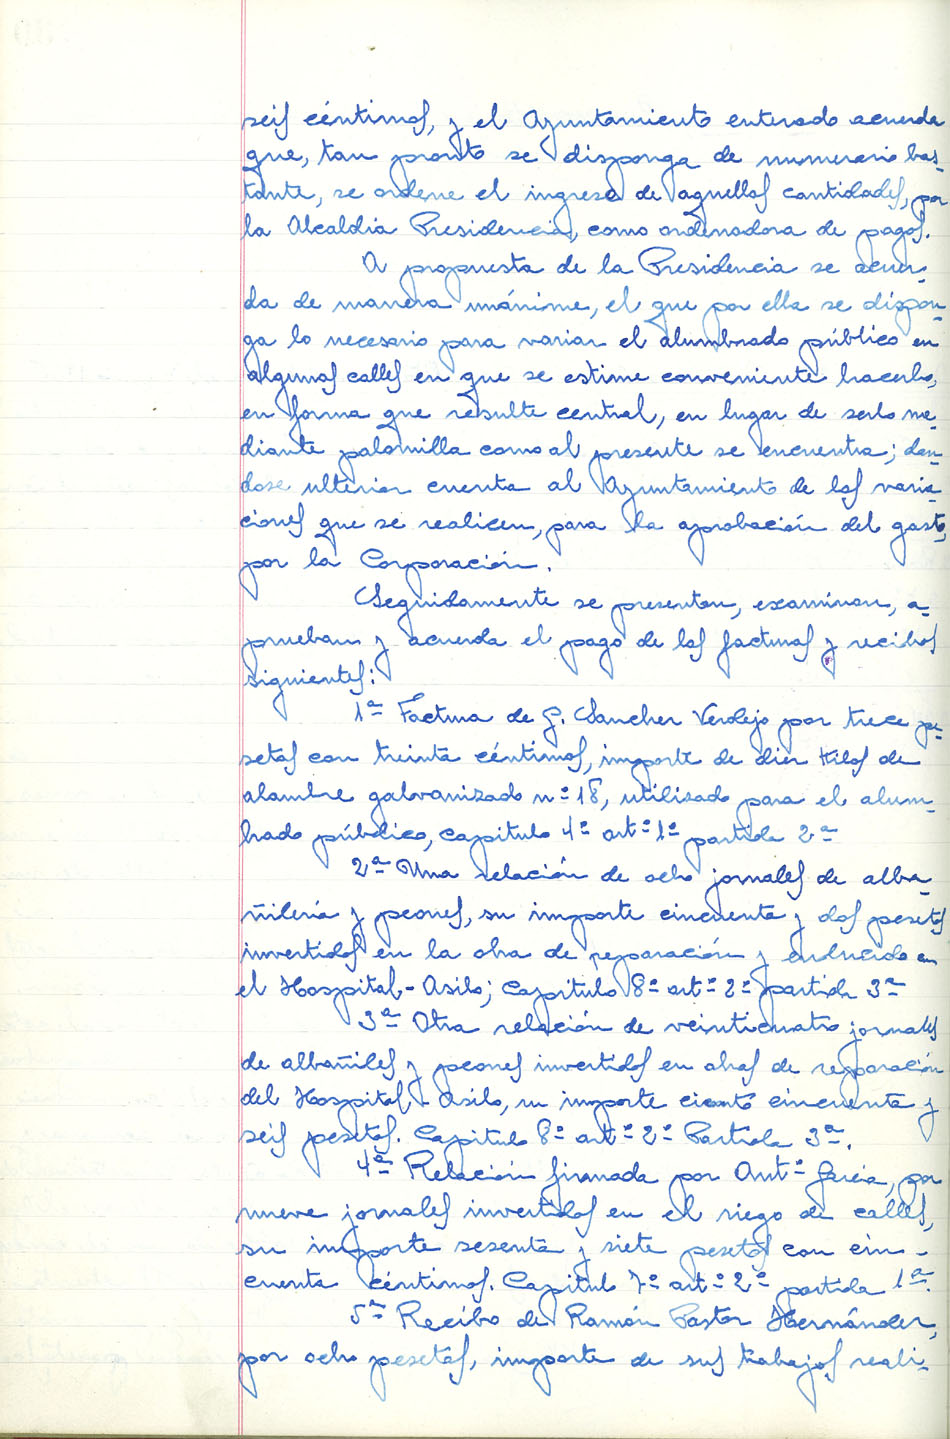 seis céntimos, y el Ayuntamiento enterado acuerda
que, tan pronto se disponga de numerario bas-
tante, se ordene el ingreso de aquellas cantidades, por
la Alcaldia Presidencia, como ordenadora de pagos.
A propuesta de la Presidencia se acuer-
da de manera unánime, el que por ella se dispon-
ga lo necesario para variar el alumbrado público en
algunas calles en que se estime conveniente hacerlo,
en forma que resulte central, en lugar de serlo me-
diante palomilla como al presente se encuentra; dan-
dose ulterior cuenta al Ayuntamiento de las varia-
ciones que se realicen, para la aprobación del gasto,
por la Corporación.
Seguidamente se presentan, examinan, a-
prueban y acuerda el pago de las facturas y recibos
siguientes:
1ª Factura de G. Sanchez Verdejo por trece pe-
setas con treinta céntimos, importe de diez kilos de
alambre galvanizado nº 18, utilizado para el alum-
brado público, capitulo 4º artº 1º partida 2ª
2ª Una relación de ocho jornales de alba-
ñileria y peones, su importe cincuenta y dos pesetas
invertidos en la obra de reparación y enducido en
el Hospital-Asilo; Capitulo 8º artº 2º partida 3ª
3ª Otra relación de veinticuatro jornales
de albañiles y peones invertidos en obras de reparación
del Hospital-Asilo, su importe ciento cincuenta y
seis pesetas. Capitulo 8º artº 2º Partida 3ª.
4ª Relación firmada por Antº Garcia, por
nueve jornales invertidos en el riego de calles,
su importe sesenta y siete pesetas con cin-
cuenta céntimos. Capitulo 7º artº 2º partida 1ª.
5ª Recibo de Ramón Pastor Hernández,
por ocho pesetas, importe de sus trabajos reali-